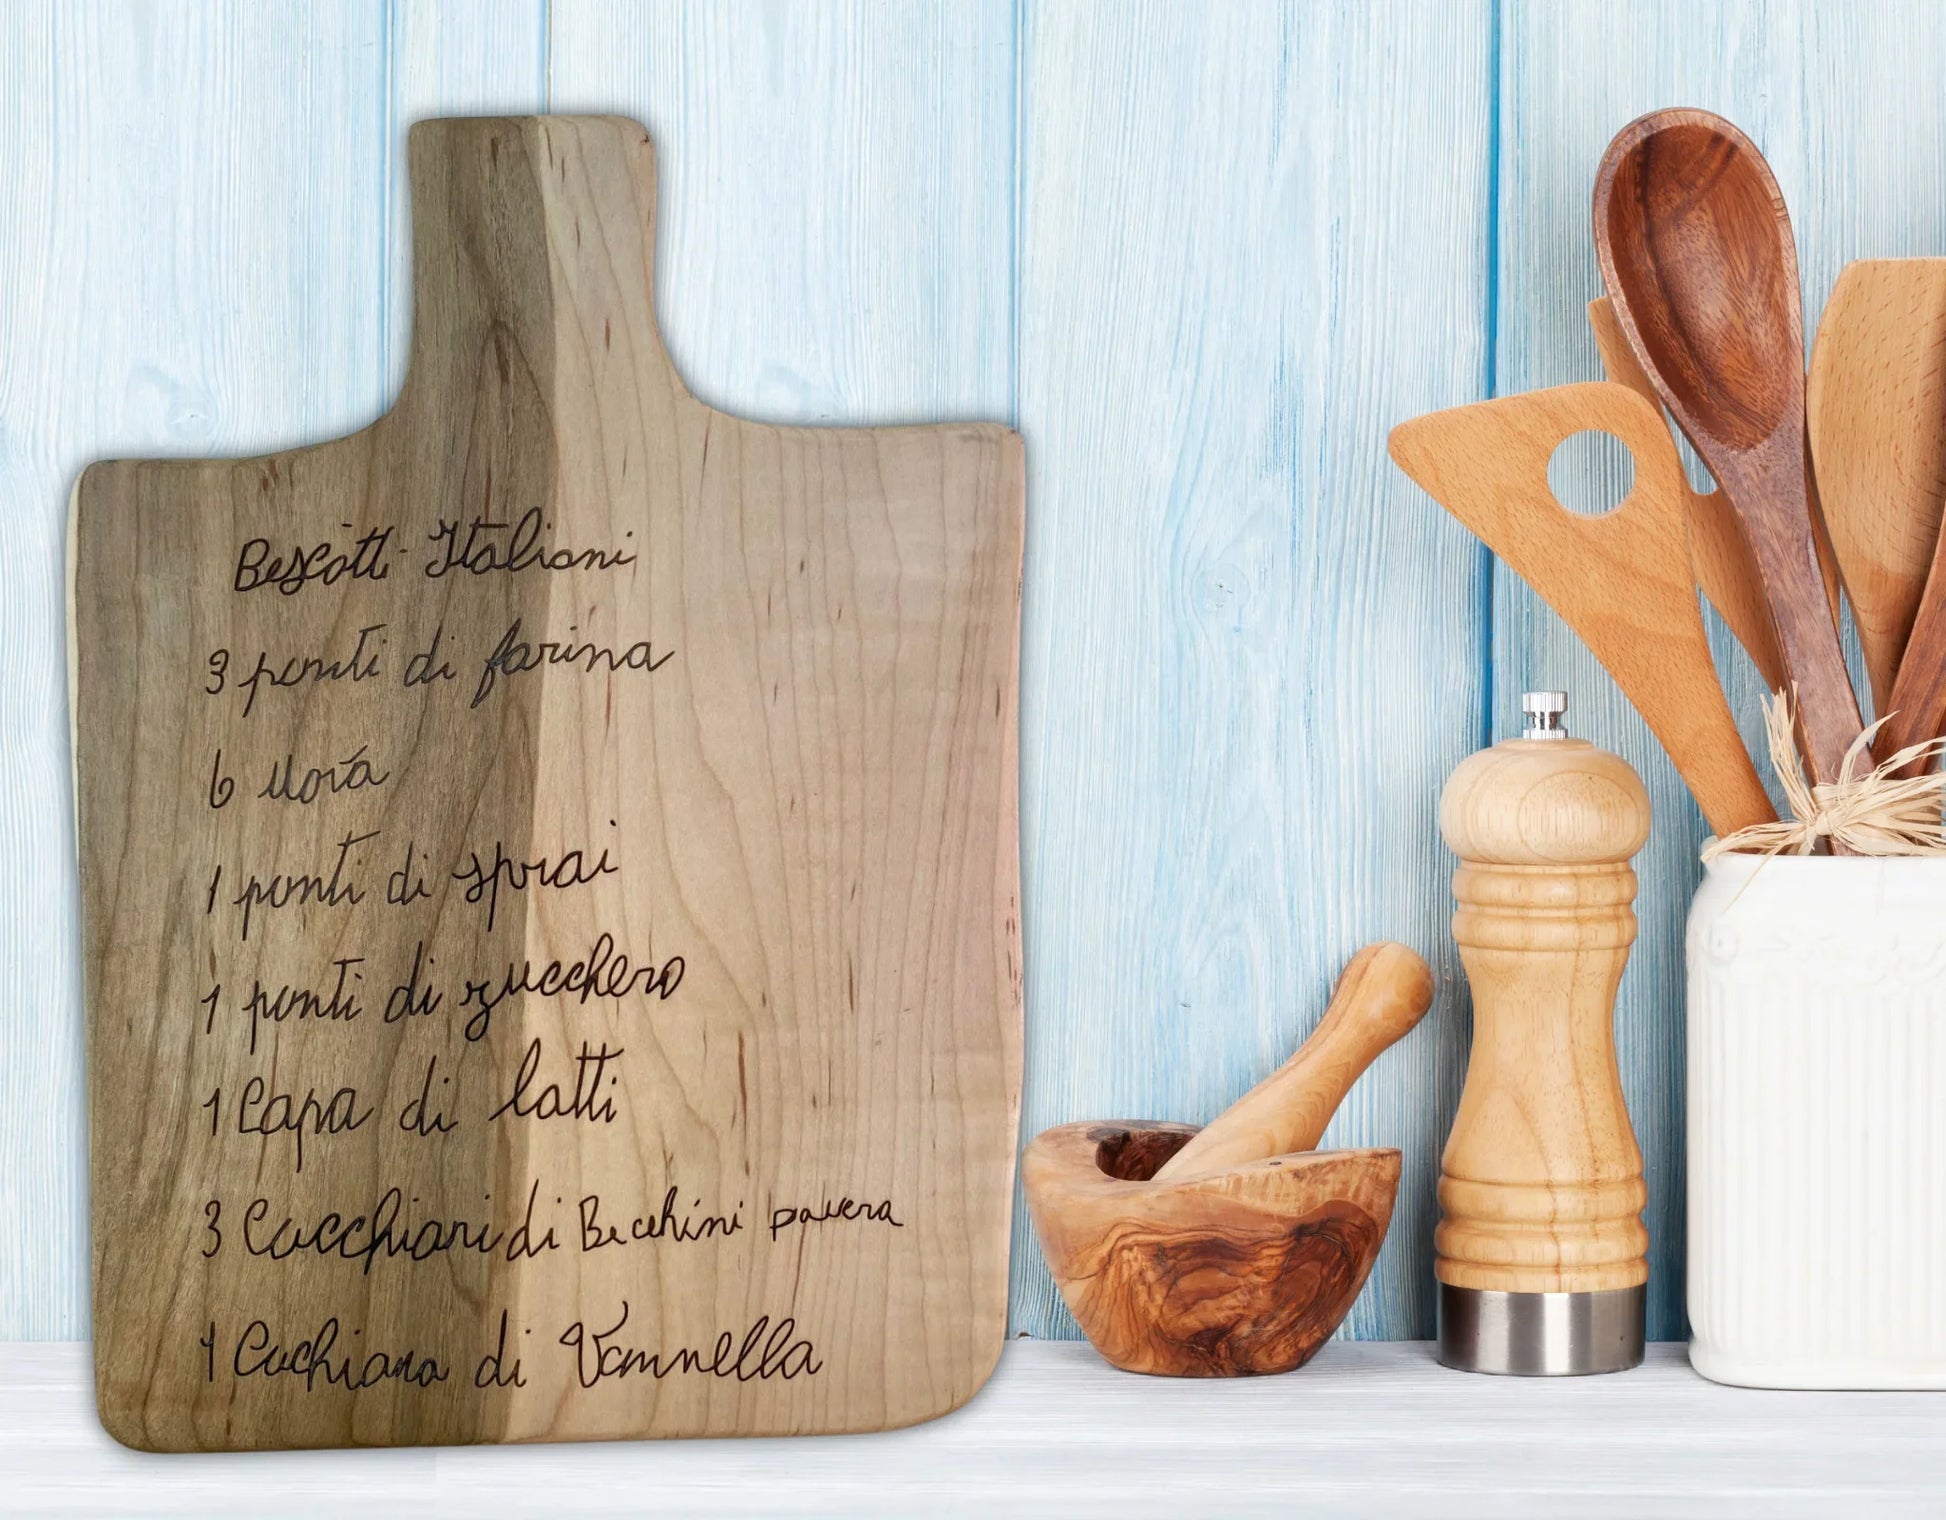 Bescotti Italiani
3 ponti di farina
6 Uova
1 ponti di sprai
1 ponti di zucchero
1 Capa di latti
3 Cucchiari di Becchini pauera
1 Cuchiara di Vannella